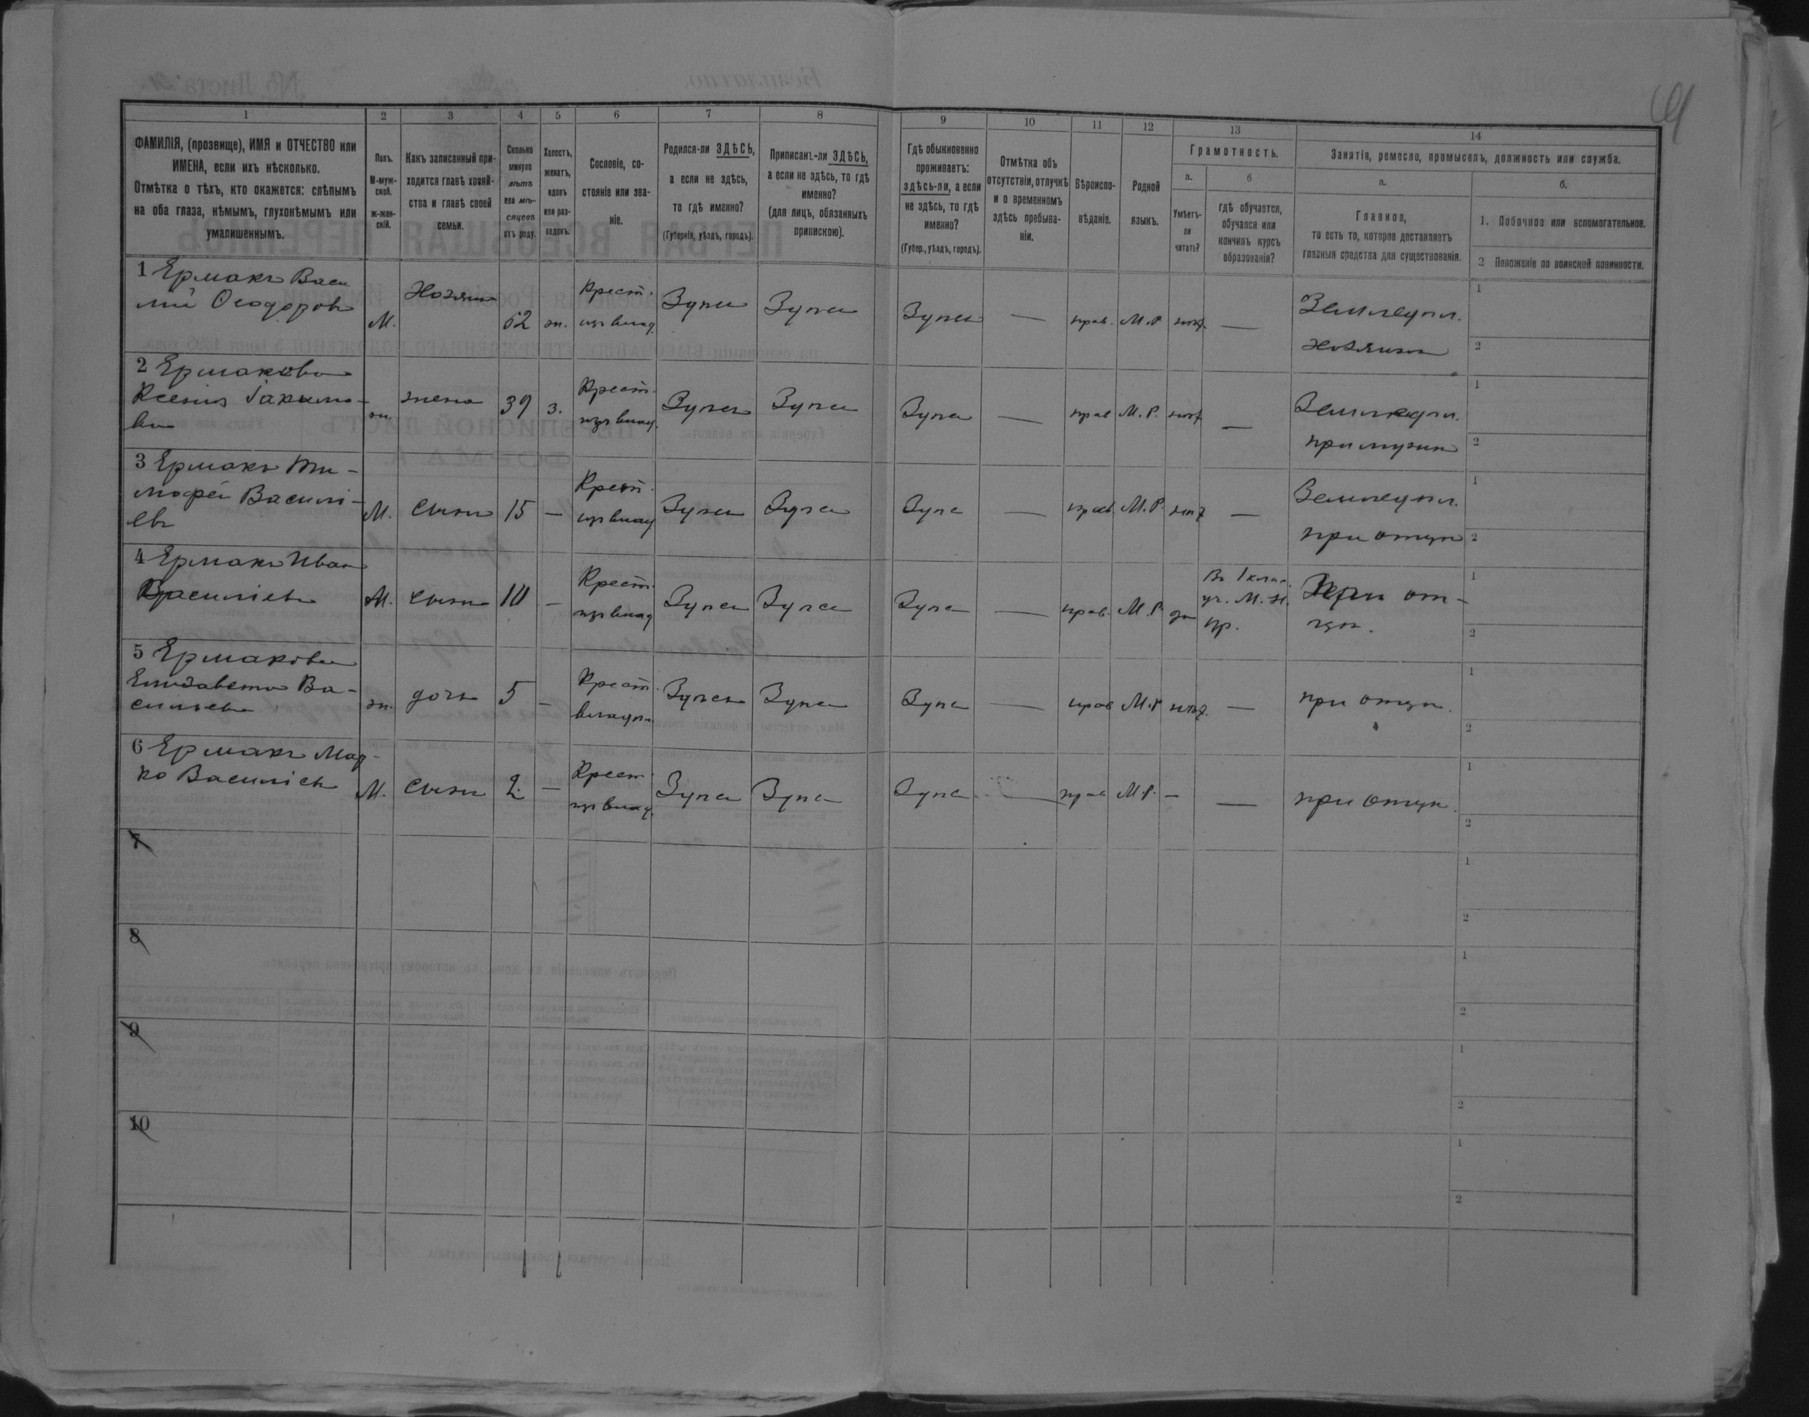 1
2
3
4
5
6
7
8
9
10
11
12
13
14
ФАМИЛІЯ, (прозвище), ИМЯ и ОТЧЕСТВО или
ИМЕНА, если ихъ нѣсколько.
Отмѣтка о тѣхъ, кто окажется: слѣпымъ
на оба глаза, нѣмымъ, глухонѣмымъ или
умалишеннымъ.
Полъ.
М-муж-
ской.
ж-жен-
скій.
Какъ записанный при-
ходится главѣ хозяй-
ства и главѣ своей
семьи.
Сколько
минуло
лѣтъ
или мѣ-
сяцевъ
отъ роду.
Холостъ,
женатъ,
вдовъ
или раз-
веденъ.
Сословіе, со-
стояніе или зва-
ніе.
Родился-ли ЗДѢСЬ,
а если не здѣсь,
то гдѣ именно?
(Губернія, уѣздъ, городъ).
Приписанъ-ли ЗДѢСЬ,
а если не здѣсь, то гдѣ
именно?
(для лицъ, обязанныхъ
припискою).
Гдѣ обыкновенно
проживаетъ:
здѣсь-ли, а если
не здѣсь, то гдѣ
именно?
(Губер., уѣздъ, городъ).
Отмѣтка объ
отсутствіи, отлучкѣ
и о временномъ
здѣсь пребыва-
ніи.
Вѣроиспо-
вѣданіе.
Родной
языкъ.
Грамотность.
а.
Умѣетъ-
ли
читать?
б
гдѣ обучается,
обучался или
кончилъ курсъ
образованія?
Занятія, ремесло, промыселъ, должность или служба.
а.
Главное,
то есть то, которое доставляетъ
главныя средства для существованія.
б.
1. Побочное или вспомогательное.
2 Положеніе по воинской повинности.
1 Ермакъ Васи
лій Ѳеодоровъ
М. Хозяинъ 62 ж. Крест. Здѣсь Здѣсь Здѣсь — прав. М.Р. — Земледѣл.
хозяинъ
1
2
2 Ермакова
Ксенія
ж. жена 39 з. Крест. Здѣсь Здѣсь Здѣсь — прав М.Р. — Земледѣл.
при мужѣ
1
2
3 Ермакъ Ти-
мофей Василі-
евъ
М. сынъ 15 — Крест. Здѣсь Здѣсь Здѣсь — прав М.Р. — Земледѣл.
при отцѣ
1
2
4 Ермакъ Иван
Василіевъ
М. сынъ 10 — Крест. Здѣсь Здѣсь Здѣсь — прав. М.Р. да
Въ 1 клас.
уч. М. Н.
пр.
При от-
цѣ.
1
2
5 Ермакова
Елизавета Ва-
сильева
ж. дочь 5 — Крест. Здѣсь Здѣсь Здѣсь — прав М.Р — при отцѣ.
1
2
6 Ермакъ Мар-
ко Василіевъ
М. сынъ 2. — Крест. Здѣсь Здѣсь Здѣсь — прав М.Р. — — при отцѣ.
1
2
7
1
2
8
1
2
9
1
2
10
1
2